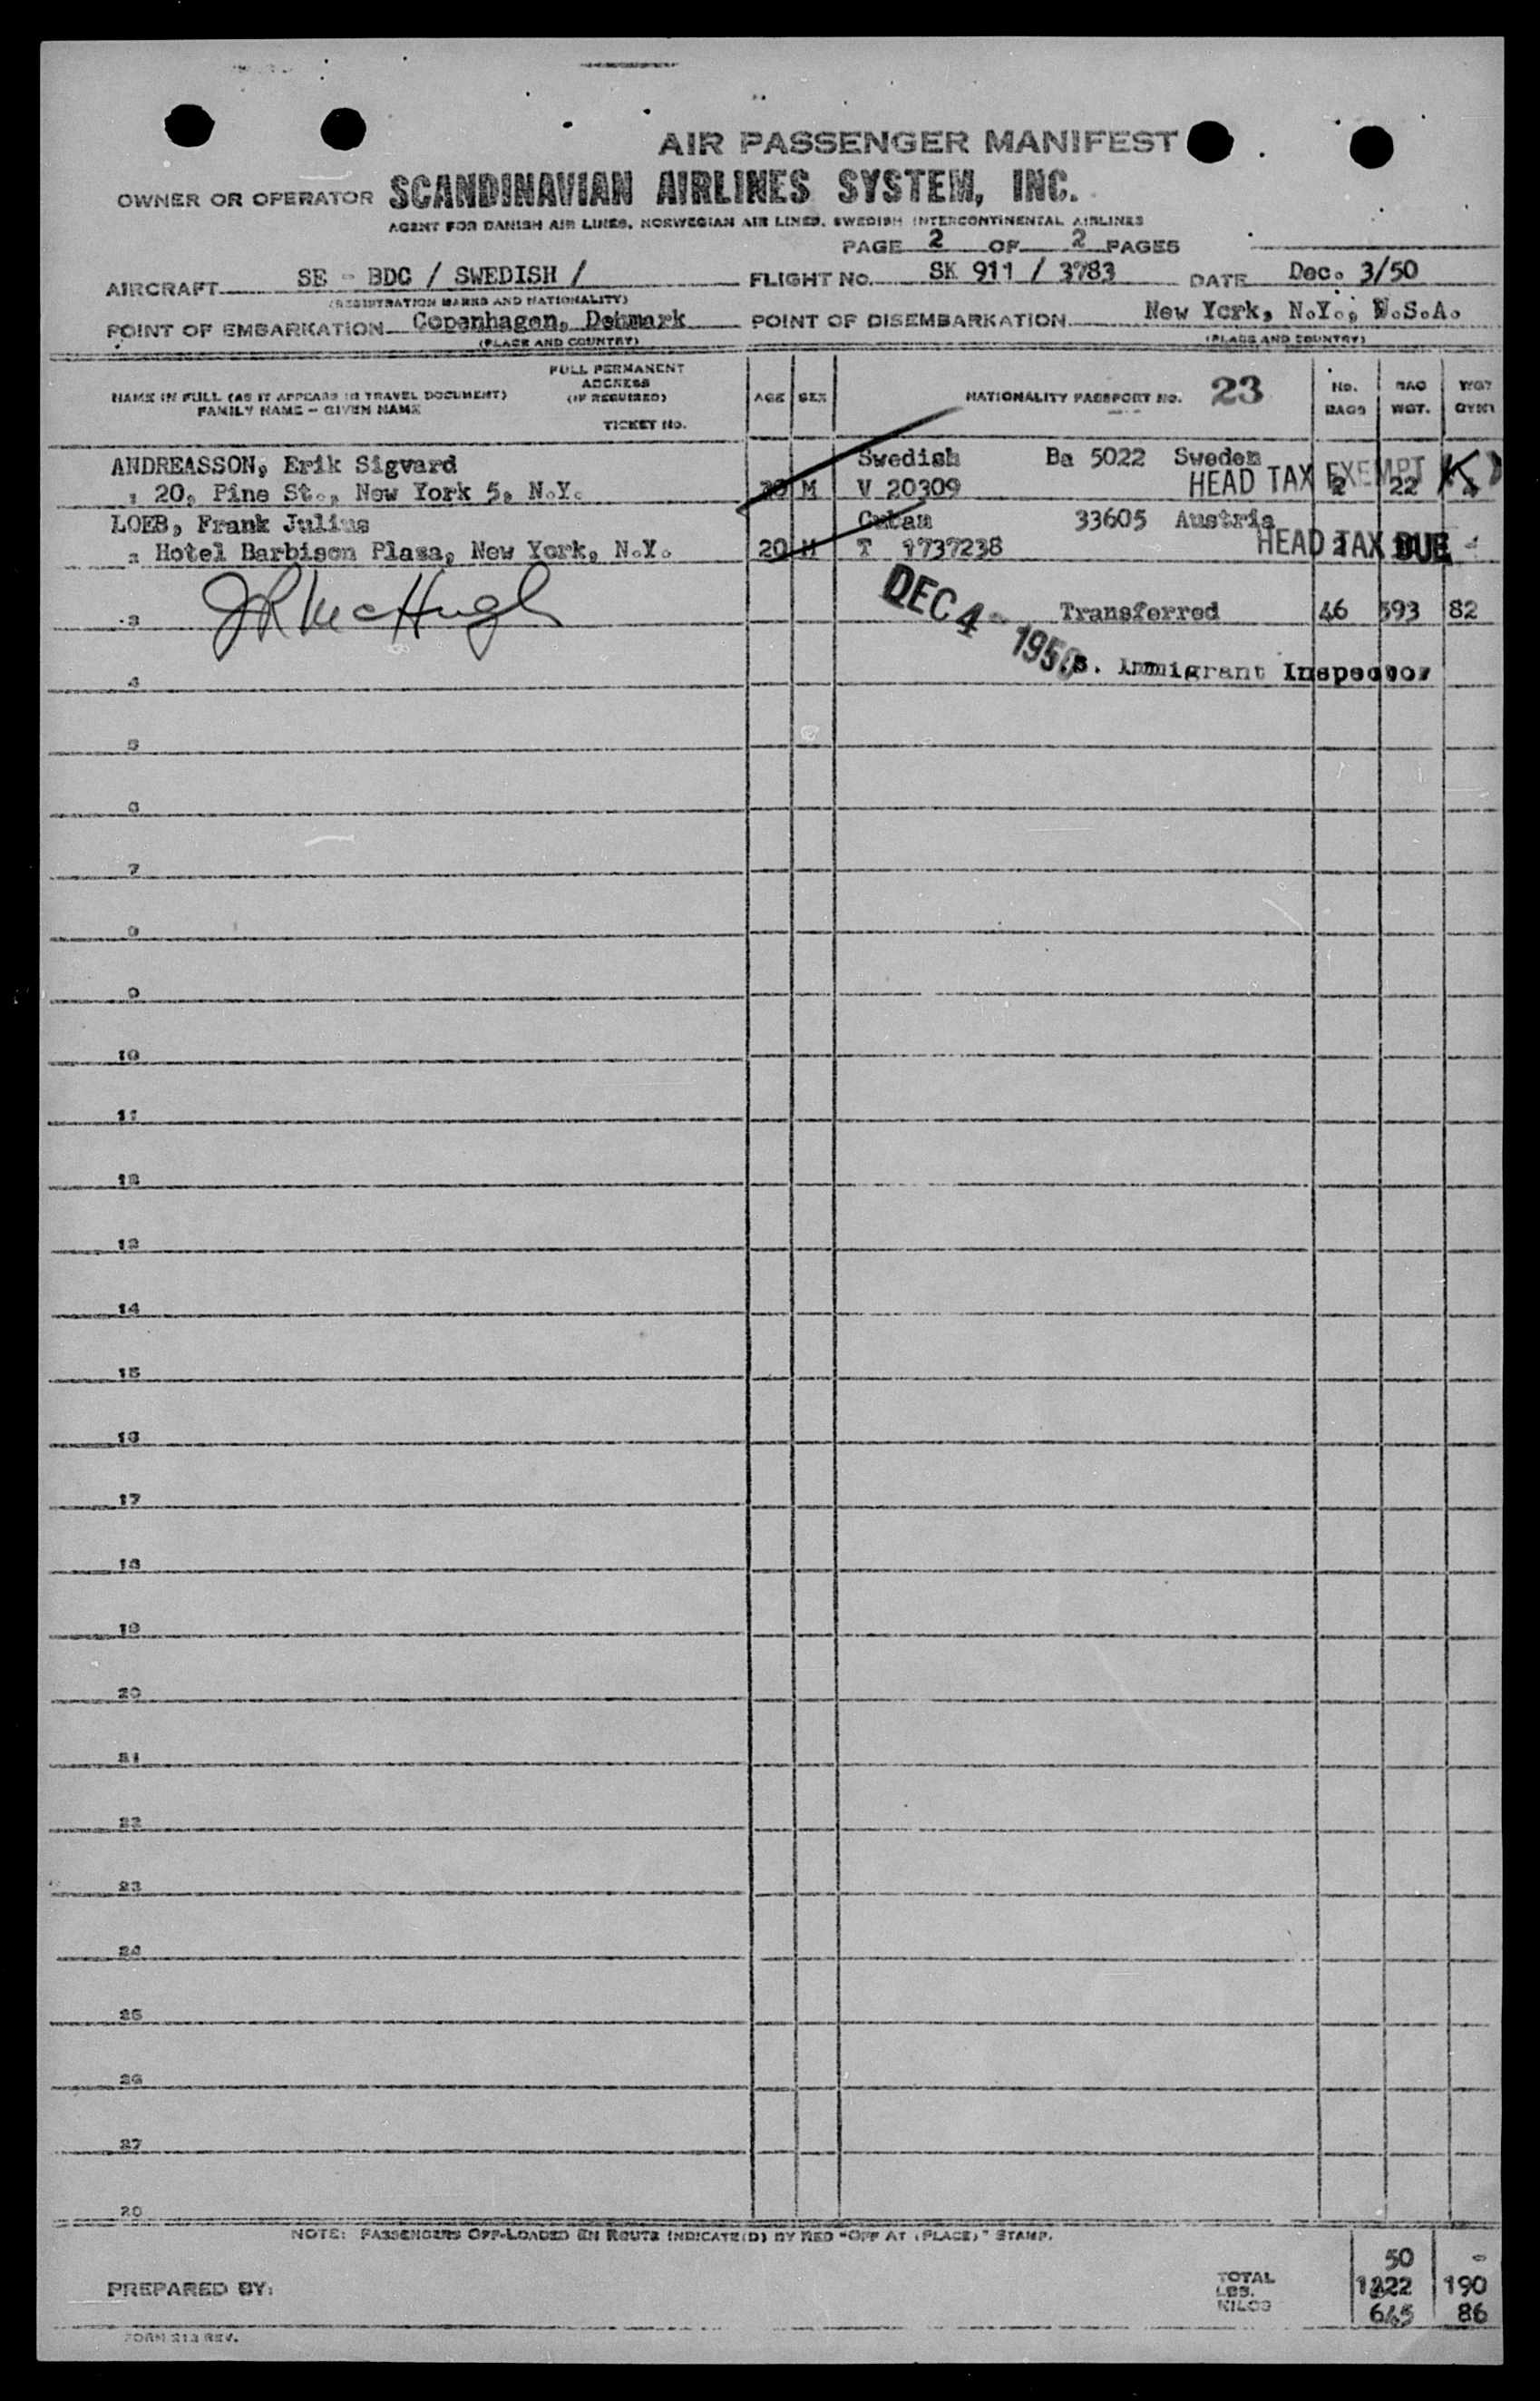 AIR PASSENGER MANIFEST
OWNER OR OPERATOR SCANDINAVIAN AIRLINES SYSTEM, INC.
AGENT FOR DANISH AIR LINES, NORWEGIAN AIR LINES, SWEDISH INTERCONTINENTAL AIRLINES
PAGE 2 OF 2 PAGES
AIRCRAFT SE - BDC / SWEDISH / FLIGHT NO. SK 911 / 3783 DATE Dec. 3/50
(REGISTRATION MARKS AND NATIONALITY)
POINT OF EMBARKATION Copenhagen, Denmark POINT OF DISEMBARKATION New York, N.Y., U.S.A.
(PLACE AND COUNTRY) (PLACE AND COUNTRY)
NAME IN FULL (AS IT APPEARS IN TRAVEL DOCUMENT)
FAMILY NAME - GIVEN NAME
FULL PERMANENT
ADDRESS
(IF REQUIRED)
TICKET NO.
AGE SEX NATIONALITY PASSPORT NO. 23 NO. BAGS BAG WGT. WGT
ANDREASSON, Erik Sigvard Swedish Ba 5022 Sweden
1 20, Pine St., New York 5, N.Y. M V 20309 HEAD TAX EXEMPT 2 22
LOEB, Frank Julius Cuban 33605 Austria
2 Hotel Barbison Plaza, New York, N.Y. 20 M T 1737238 HEAD TAX DUE
3 JR McHugh DEC 4 - 1950 Transferred 46 593 82
S. Immigrant Inspector
4
5
6
7
8
9
10
11
12
13
14
15
16
17
18
19
20
21
22
23
24
25
26
27
28
NOTE: PASSENGERS OFF-LOADED EN ROUTE INDICATE(D) BY RED "OFF AT (PLACE)" STAMP.
50 -
PREPARED BY: TOTAL LBS. 1322 190
KILOS 645 86
FORM 213 REV.